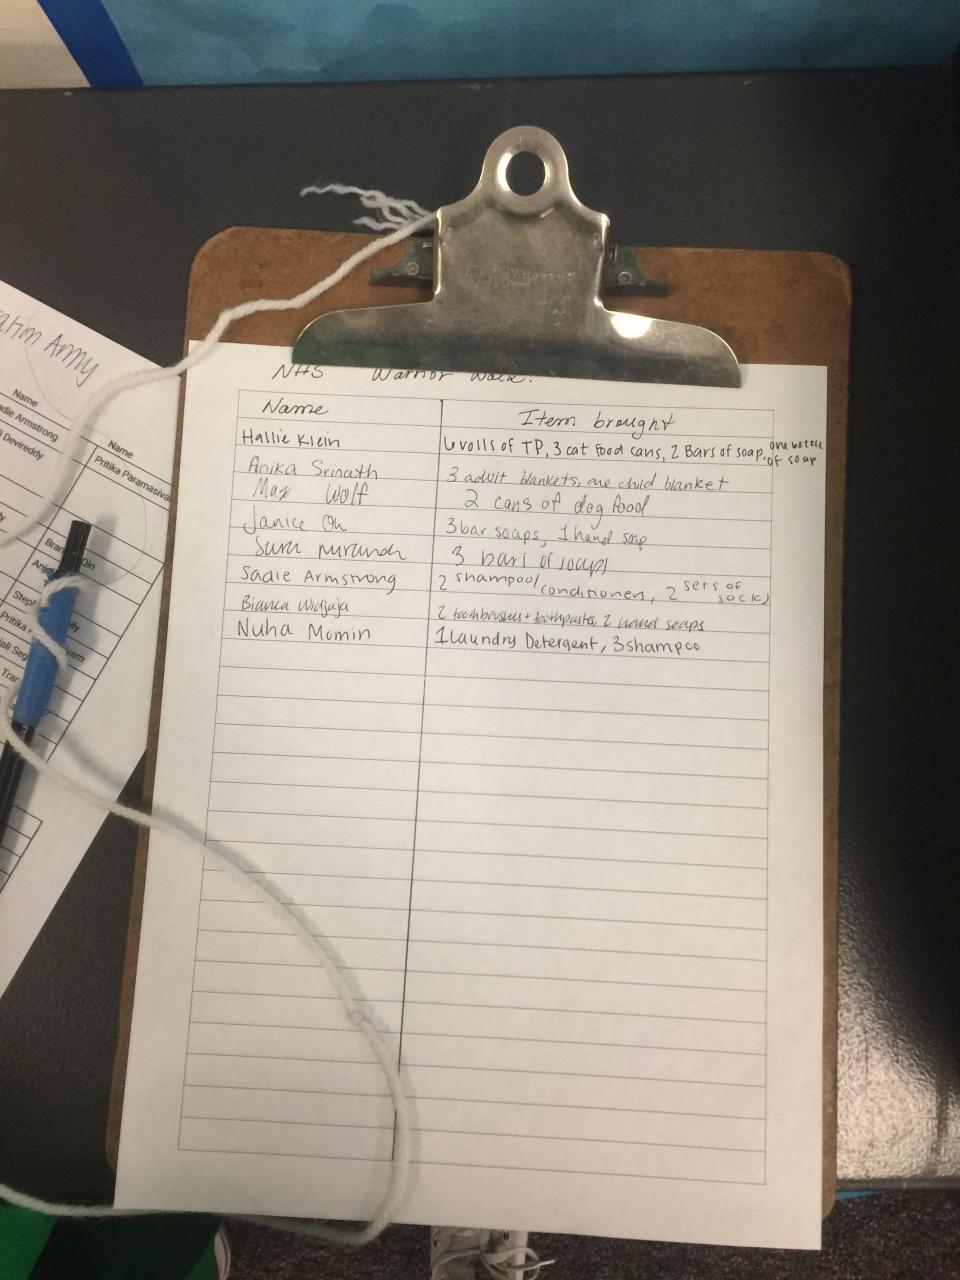 NHS Warrior Walk.
Name Item brought
Hallie Klein 6 rolls of TP, 3 cat food cans, 2 Bars of soap, one bottle of soap
Anika Srinath 3 adult blankets, one child blanket
Max Wolf 2 cans of dog food
Janice Oh 3 bar soaps, 1 hand soap
3 bars of soaps
Sadie Armstrong 2 shampoo/conditioners, 2 sets of socks
Bianca Widjaja 2 toothbrushes + toothpastes, 2 hand soaps
Nuha Momin 1 Laundry Detergent, 3 shampoo
Army
Name
Armstrong
Devireddy
Name
Pritika
Qin